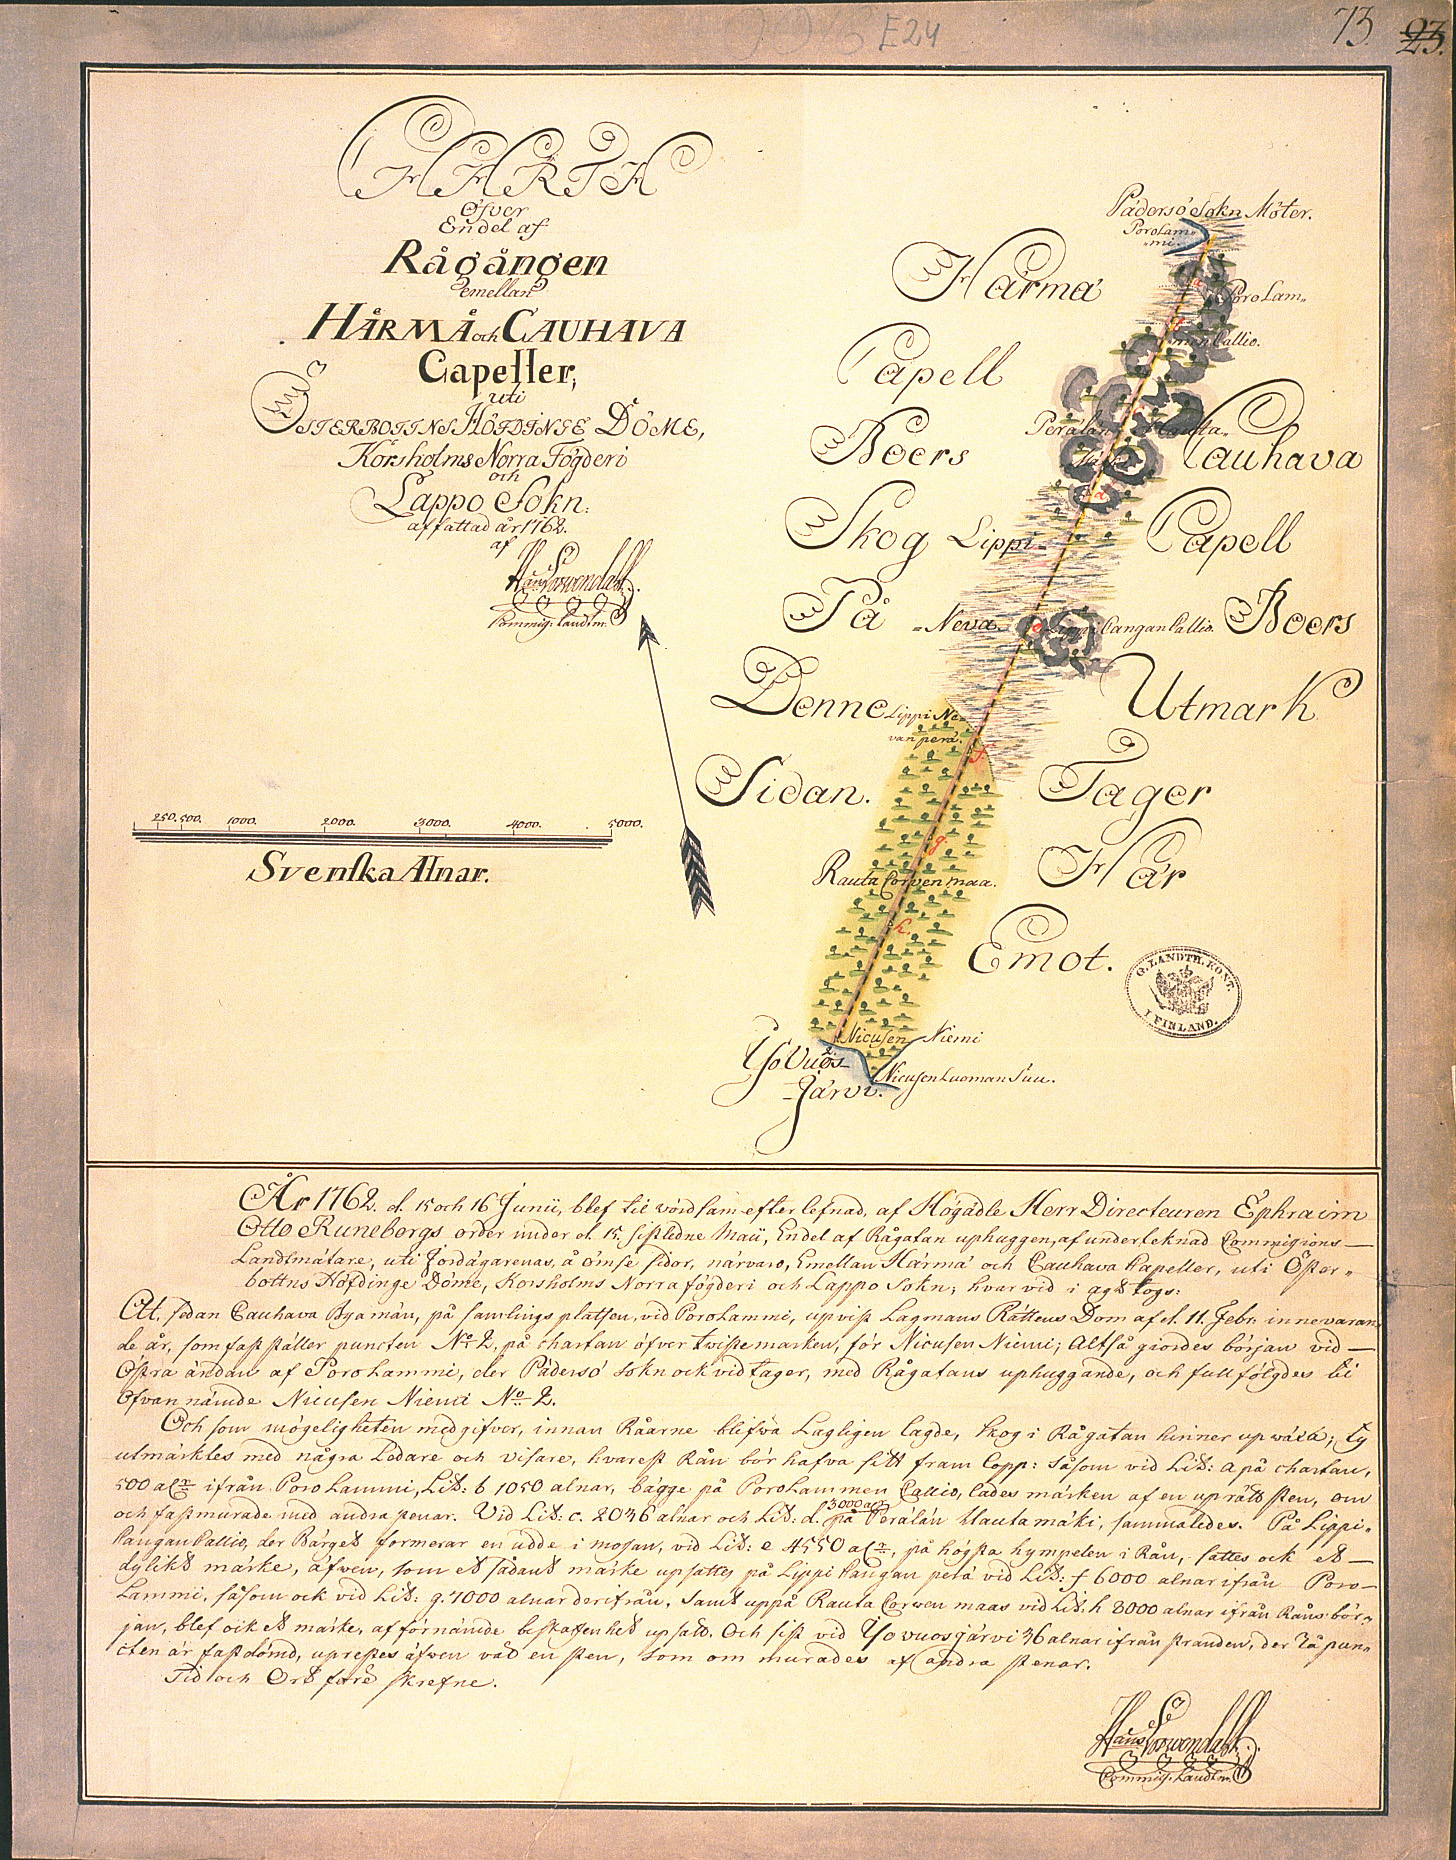 E24
73.
23.
CHARTA
Öfver
Endel af
Rågången
emellan
HÄRMÄ och CAUHAVA
Capeller,
uti
ÖSTERBOTTNS HÖFDINGE DÖME,
Korsholms Norra Fögderi
och
Lappo Sokn:
affattad år 1762.
af
Commiss: Landtm.
250. 500. 1000. 2000. 3000. 4000. 5000.
Svenska Alnar.
Pädersö Sokn Möter.
PoroLam=
=mi.
Härmä
Capell
Boers
Skog
På
Denne
Sidan.
a
PoroLam=
b
menCallio.
Perälän Hauta=
Mäki
d
Cauhava
Capell
Boers
Utmark
Tager
Här
Emot.
Lippi=
=Neva.
e
Lippi CanganCallio.
Lippi Ne=
van perä.
f
g.
Rauta Corven maa.
h.
Nicusen Niemi
2.
Yso Vuos=
=Järvi.
Nicusen Luoman Suu.
G. LANDTM. KONT.
I FINLAND.
År 1762. d. 15 och 16 Junii, blef til vördsam efterlefnad, af Högädle Herr Directeuren Ephraim
Otto Runebergs order under d. 15. sistledne Maii, Endel af Rågatan uphuggen, af underteknad Commissions=
Landtmätare, uti Jordägarenas, å ömse sidor, närvaro, Emellan Härmä och Cauhava Capeller, uti Öster=
bottns Höfdinge Döme, Korsholms Norra fögderi och Lappo Sokn; hvarvid i agt togs:
Att, sedan Cauhava Byamän, på samlings platsen, vid PoroLammi, upvist Lagmans Rättens Dom af d. 11. Febr. innevaran=
de år, som fastställer puncten No 2, på chartan öfver twistemarken, för Nicusen Niemi; Altså giordes början vid
Östra ändan af PoroLammi, der Pädersö Sokn ock vidtager, med Rågatans uphuggande, och fullfölgdes til
ofvannämde Nicusen Niemi No 2.
Och som möjeligheten medgifver, innan Råarne blifva Lagligen lagde, skog i Rågatan hinner upwäxa; ty
utmärktes med några Ledare och Visare, hvarest Rån bör hafva sitt fram Lopp: såsom vid Litt: a på chartan,
500 alnr ifrån PoroLammi, Litt: b 1050 alnar, bägge på PoroLammen Callio, lades märken af en uprätt sten, om
och fastmurade med andra stenar. Vid Litt: c. 2036 alnar och Litt: d. 3000 alnr på Perälän Hautamäki, sammaledes. På Lippi=
CanganCallio, der Bärget formerar en udde i mossan, vid Litt: e 4550 alnr, på högsta hympelen i Rån, sattes ock ett
dylikt märke, äfwen, som ett sådant märke upsattes på Lippi Cangan perä vid Litt: f 6000 alnar ifrån Poro=
Lammi, såsom ock vid Litt: g. 7000 alnar derifrån, samt uppå Rauta Corwen maas vid Litt. h 8000 alnar ifrån Råns bör=
jan, blef ock ett märke, af förnämde beskaffenhet upsatt. Och sist vid Yso vuosjärvi 36 alnar ifrån stranden, der Råpun=
cten är fastdömd, uprestes äfwen väl en sten, som ommurades af andra stenar.
Tid och Ort förr skrefne.
Commiss: Landtm.